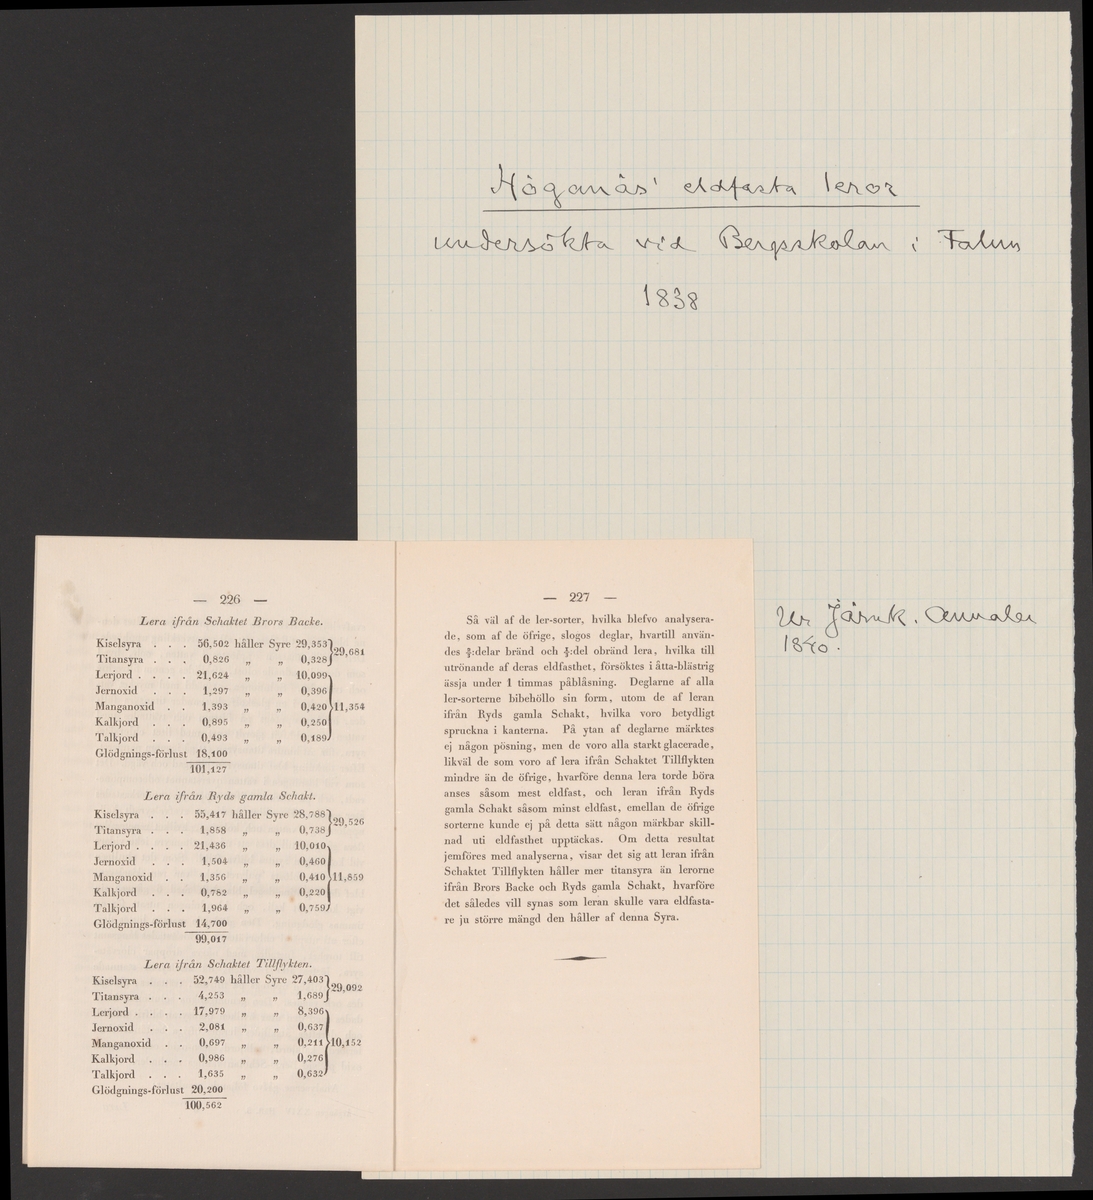 Höganäs' eldfasta leror
undersökta vid Bergsskolan i Falun
1838
Ur Järnk. Annaler
1840.
— 226 —
Lera ifrån Schaktet Brors Backe.
Kiselsyra . . . 56,502 håller Syre 29,353 } 29,681
Titansyra . . . 0,826 „ „ 0,328
Lerjord . . . . 21,624 „ „ 10,099
Jernoxid . . . 1,297 „ „ 0,396
Manganoxid . . 1,393 „ „ 0,420 } 11,354
Kalkjord . . . 0,895 „ „ 0,250
Talkjord . . . 0,493 „ „ 0,189
Glödgnings-förlust 18,100
101,127
Lera ifrån Ryds gamla Schakt.
Kiselsyra . . . 55,417 håller Syre 28,788 } 29,526
Titansyra . . . 1,858 „ „ 0,738
Lerjord . . . . 21,436 „ „ 10,010
Jernoxid . . . 1,504 „ „ 0,460
Manganoxid . . 1,356 „ „ 0,410 } 11,859
Kalkjord . . . 0,782 „ „ 0,220
Talkjord . . . 1,964 „ „ 0,759
Glödgnings-förlust 14,700
99,017
Lera ifrån Schaktet Tillflykten.
Kiselsyra . . . 52,749 håller Syre 27,403 } 29,092
Titansyra . . . 4,253 „ „ 1,689
Lerjord . . . . 17,979 „ „ 8,396
Jernoxid . . . 2,081 „ „ 0,637
Manganoxid . . 0,697 „ „ 0,211 } 10,152
Kalkjord . . . 0,986 „ „ 0,276
Talkjord . . . 1,635 „ „ 0,632
Glödgnings-förlust 20,200
100,562
— 227 —
Så väl af de ler-sorter, hvilka blefvo analysera-
de, som af de öfrige, slogos deglar, hvartill använ-
des ⅔:delar bränd och ⅓:del obränd lera, hvilka till
utrönande af deras eldfasthet, försöktes i åtta-blästrig
ässja under 1 timmas påblåsning. Deglarne af alla
ler-sorterne bibehöllo sin form, utom de af leran
ifrån Ryds gamla Schakt, hvilka voro betydligt
spruckna i kanterna. På ytan af deglarne märktes
ej någon pösning, men de voro alla starkt glacerade,
likväl de som voro af lera ifrån Schaktet Tillflykten
mindre än de öfrige, hvarföre denna lera torde böra
anses såsom mest eldfast, och leran ifrån Ryds
gamla Schakt såsom minst eldfast, emellan de öfrige
sorterne kunde ej på detta sätt någon märkbar skill-
nad uti eldfasthet upptäckas. Om detta resultat
jemföres med analyserna, visar det sig att leran ifrån
Schaktet Tillflykten håller mer titansyra än lerorne
ifrån Brors Backe och Ryds gamla Schakt, hvarföre
det således vill synas som leran skulle vara eldfasta-
re ju större mängd den håller af denna Syra.